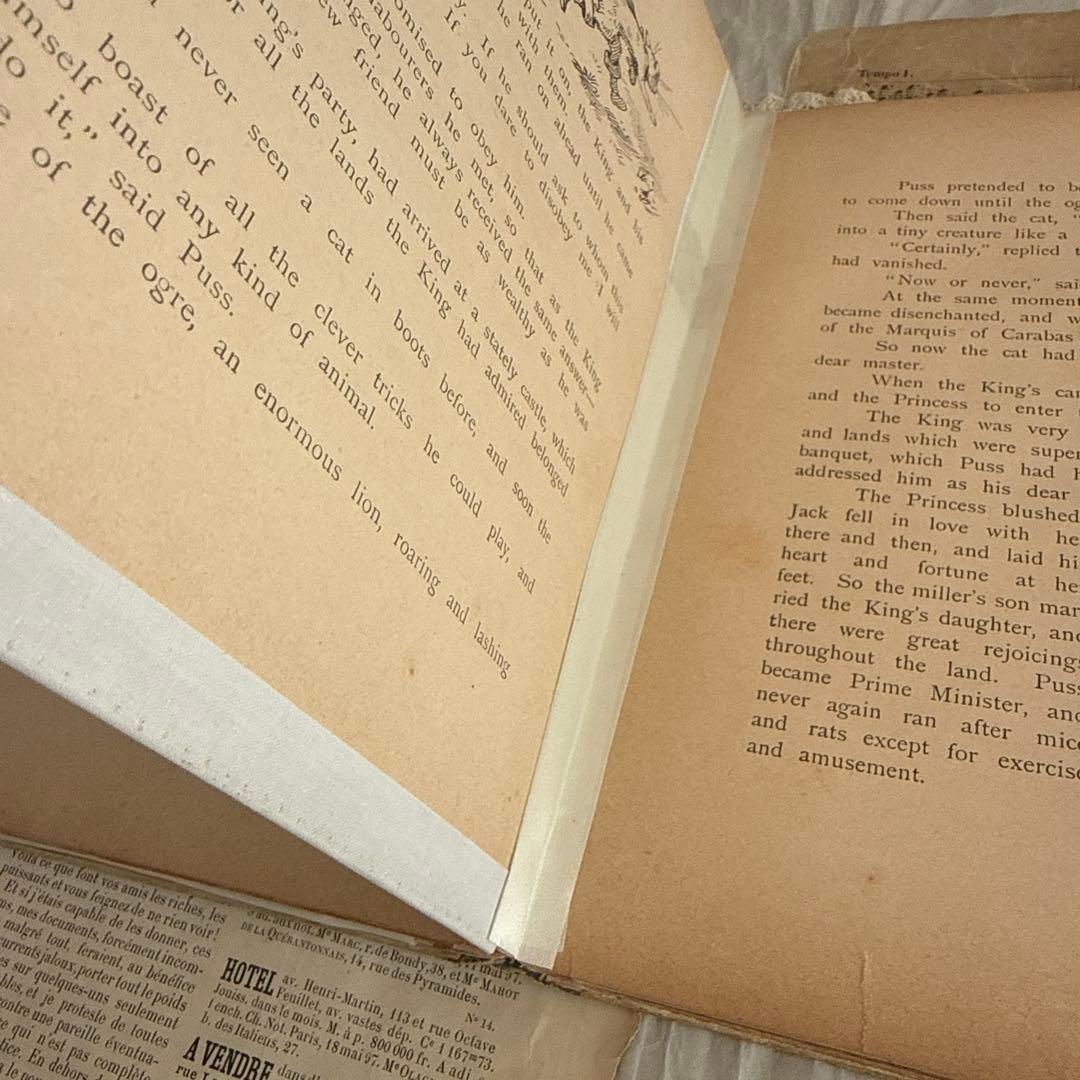 put it on, the King and his
with them.
he ran on ahead until he came
If he should ask to whom this
If you dare to disobey me I will
omised to obey him.
labourers he met, so that as the King
nged, he always received the same answer—
ew friend must be as wealthy as he was
ng's party, had arrived at a stately castle, which
or all the lands the King had admired belonged
never seen a cat in boots before, and soon the
boast of all the clever tricks he could play, and
mself into any kind of animal.
do it," said Puss.
of the ogre, an enormous lion, roaring and lashing
Tempo I.
Puss pretended to be
to come down until the og
Then said the cat, "
into a tiny creature like a
"Certainly," replied t
had vanished.
"Now or never," sai
At the same moment
became disenchanted, and w
of the Marquis of Carabas
So now the cat had
dear master.
When the King's car
and the Princess to enter
The King was very
and lands which were super
banquet, which Puss had h
addressed him as his dear
The Princess blushed
Jack fell in love with he
there and then, and laid hi
heart and fortune at he
feet. So the miller's son mar
ried the King's daughter, and
there were great rejoicings
throughout the land. Puss
became Prime Minister, and
never again ran after mice
and rats except for exercise
and amusement.
Voilà ce que font vos amis les riches, les
puissants et vous feignez de ne rien voir!
Et si j'étais capable de les donner, ces
ms, mes documents, forcément incom-
malgré tout, feraient, au bénéfice
currents jaloux, porter tout le poids
es sur quelques-uns seulement
bles, et je proteste de toutes
contre une pareille éventua-
ce qui n'est pas complète
tice. En dehors
Mᵉ MARC, r. de Bondy, 38, et Mᵉ MABOT
DE LA QUÉRANTONNAIS, 14, rue des Pyramides.
mai 97.
Nº 14.
HOTEL av. Henri-Martin, 113 et rue Octave
Feuillet, av. vastes dép. Cᵉ 1167ᵐ73.
Jouiss. dans le mois. M. à p. 800 000 fr. A adj. s
1 ench. Ch. Not. Paris, 18 mai 97. Mᵉ
b. des Italiens, 27.
A VENDRE dans
rue